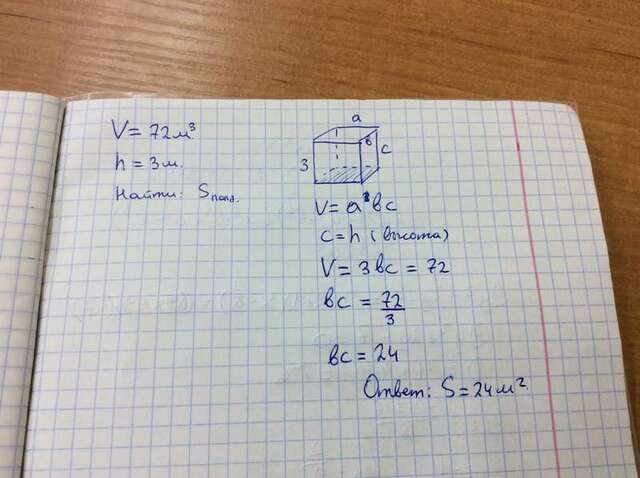 V = 72 м³
h = 3 м.
Найти: Sпола.
a
в
c
3
V = a вc
c = h (высота)
V = 3вc = 72
вc = 72/3
вc = 24
Ответ: S = 24 м²